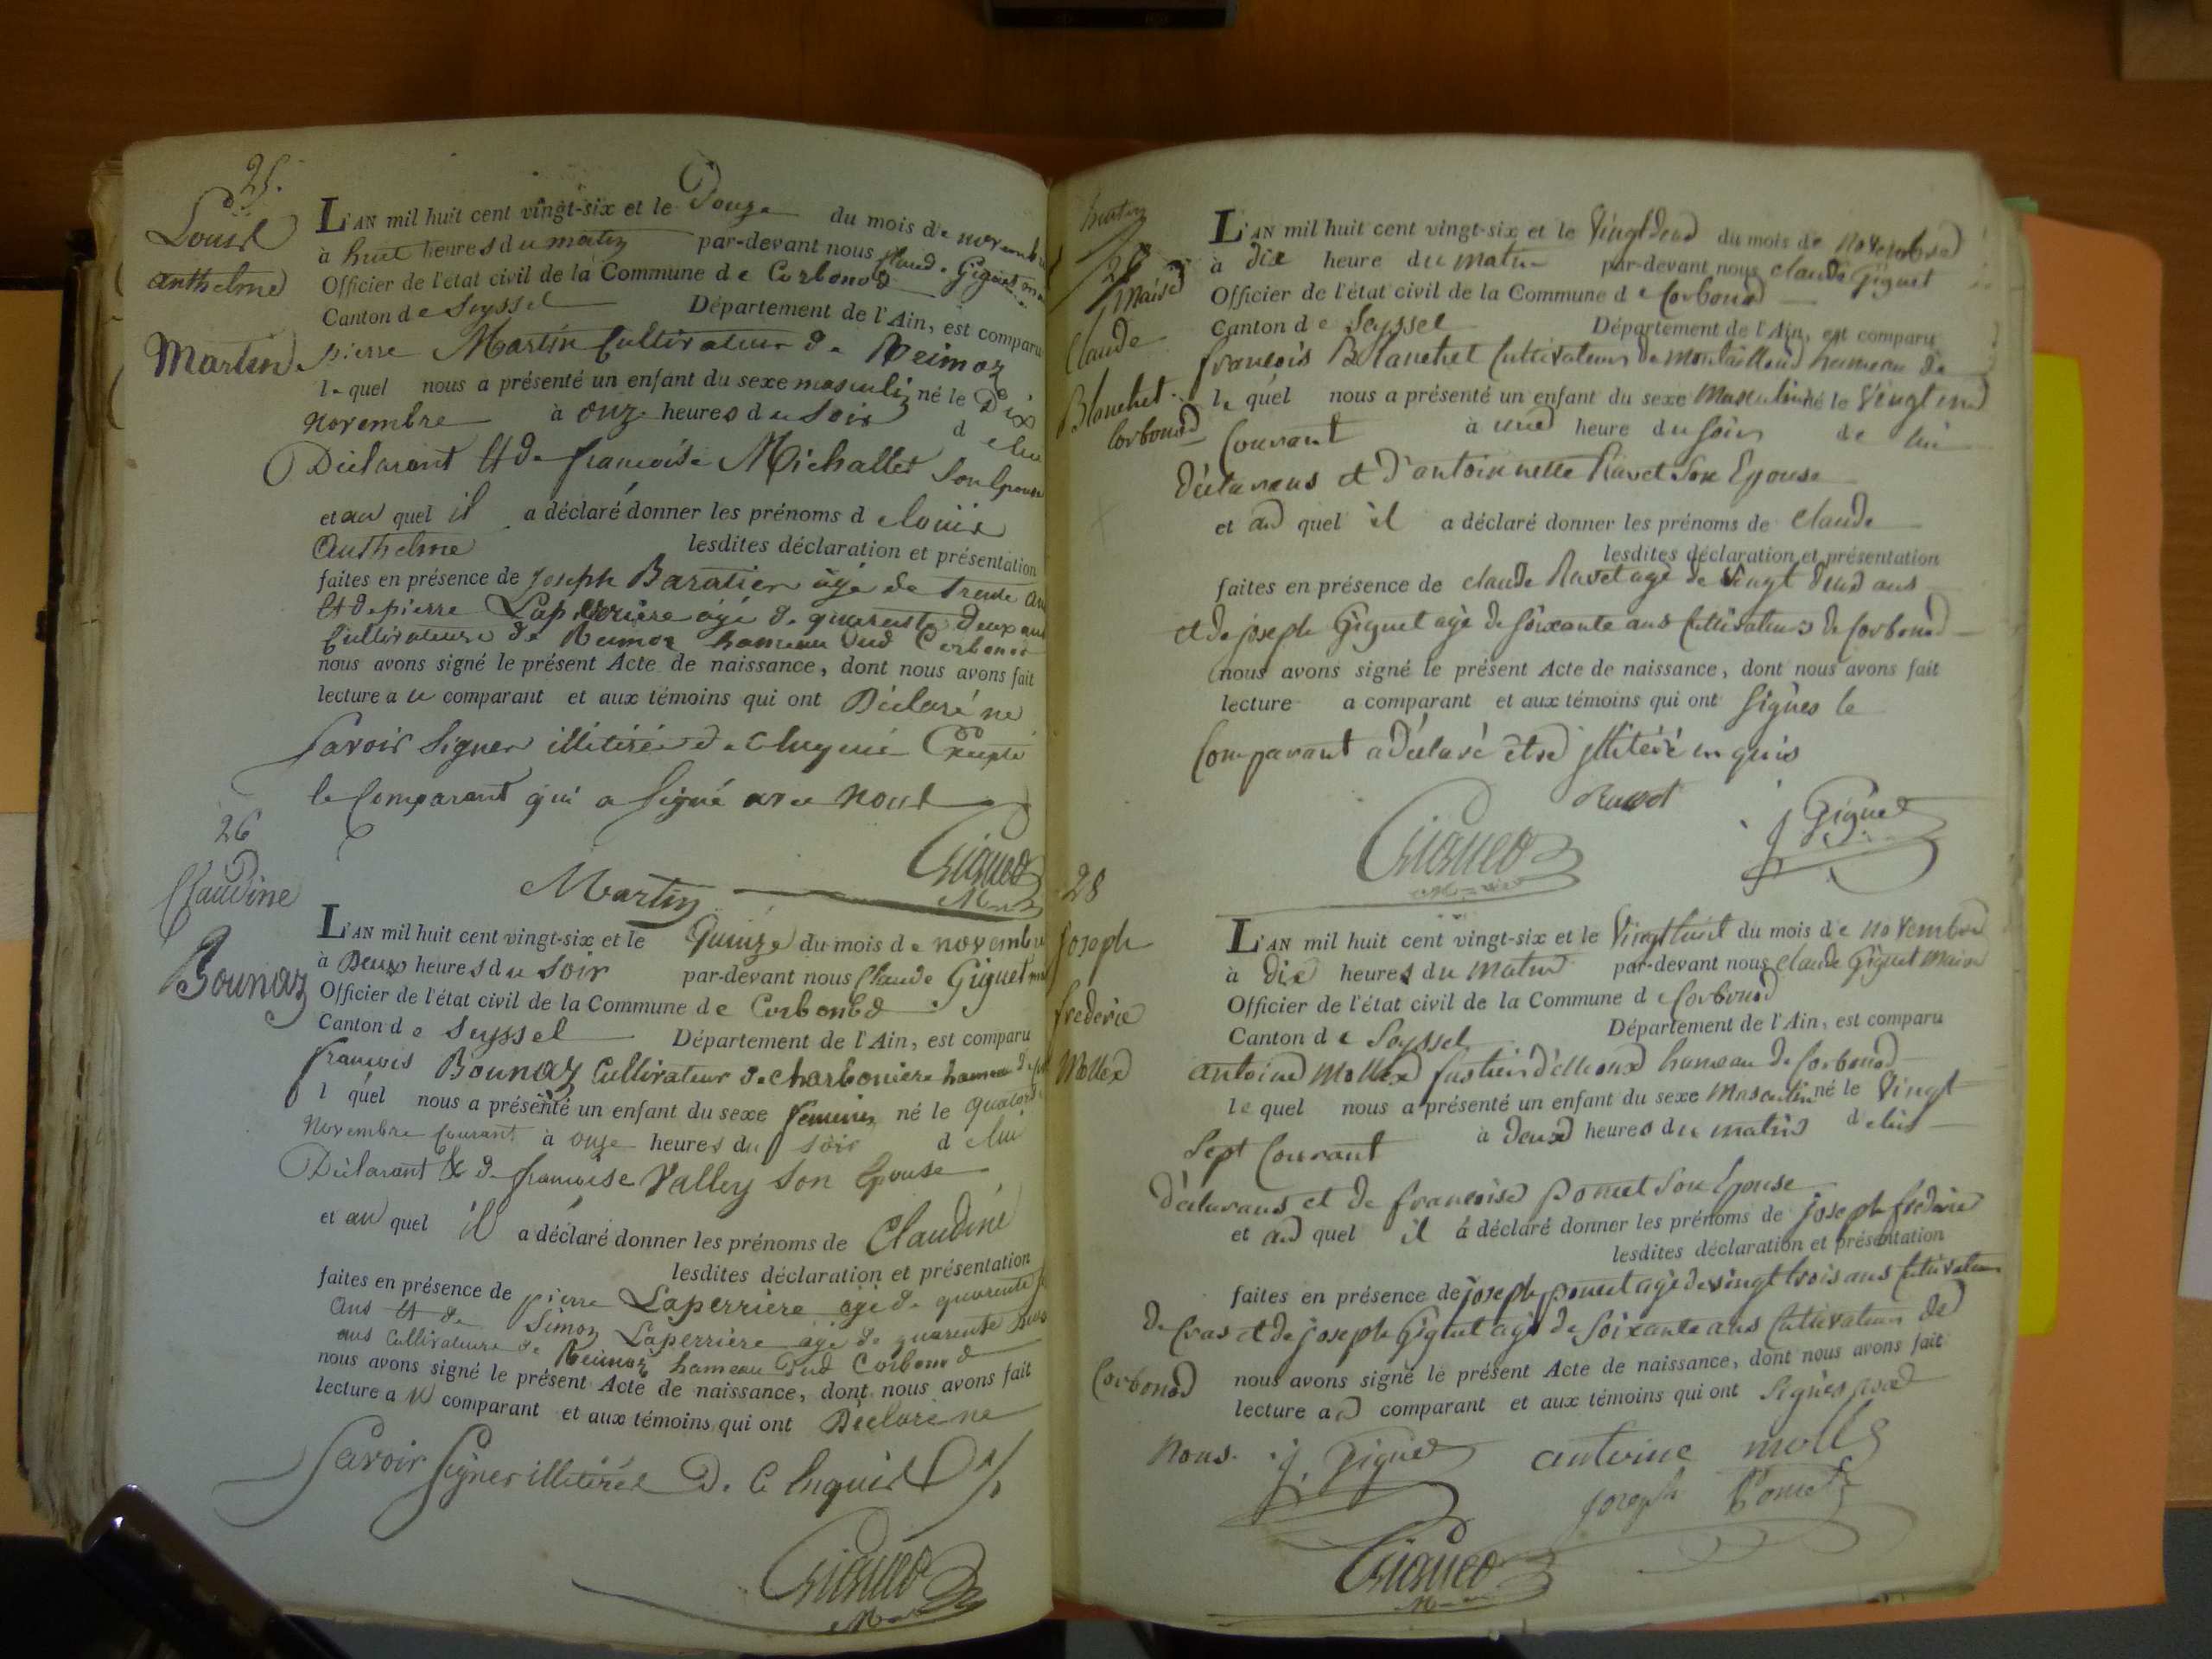 25.
Louis
anthelme
Martin
L'AN mil huit cent vingt-six et le Douze du mois de novembre
à huit heures du matin par-devant nous Claude Giguet
Officier de l'état civil de la Commune de Corbonod
Canton de Seyssel Département de l'Ain, est comparu
pierre Martin Cultivateur de
le quel nous a présenté un enfant du sexe masculin né le Dix
novembre à onze heures du Soir de lui
Déclarant et de francoise Michallet Son Epouse
et au quel il a déclaré donner les prénoms de louis
Anthelme lesdites déclaration et présentation
faites en présence de Joseph Baratier âgé de trente ans
et de pierre Laperriere âgé de quarente Deux ans
Cultivateurs de hameau dud Corbonod
nous avons signé le présent Acte de naissance, dont nous avons fait
lecture au comparant et aux témoins qui ont Déclaré ne
savoir Signer illitérés de ce Enquis Excepté
le Comparant qui a Signé avec nous
Martin Giguet
26
Claudine
Bounaz
L'AN mil huit cent vingt-six et le Quinze du mois de novembre
à Deux heures du Soir par-devant nous Claude Giguet
Officier de l'état civil de la Commune de Corbonod
Canton de Seyssel Département de l'Ain, est comparu
francois Bounaz Cultivateur de charboniere hameau
l quel nous a présenté un enfant du sexe feminin né le quatorze
Novembre Courant à onze heures du soir de lui
Déclarant & de francoise Valley Son Epouse
et au quel il a déclaré donner les prénoms de Claudine
lesdites déclaration et présentation
faites en présence de pierre Laperriere âgé de quarente
ans et de Simon Laperriere âgé de quarente
ans Cultivateurs de hameau Dud Corbonod
nous avons signé le présent Acte de naissance, dont nous avons fait
lecture au comparant et aux témoins qui ont Déclaré ne
Savoir Signer illitérés De Ce Enquis
Giguet
Claude
Blanchet
Corbonod
L'AN mil huit cent vingt-six et le Vingt deux du mois de Novembre
à dix heure du matin par-devant nous claude Giguet
Officier de l'état civil de la Commune de Corbonod
Canton de Seyssel Département de l'Ain, est comparu
francois Blanchet Cultivateur de hameau de
le quel nous a présenté un enfant du sexe Masculin né le Vingt un
Courant à une heure du soir de lui
déclarans et d'antoinnette Ravet Son Epouse
et au quel il a déclaré donner les prénoms de claude
lesdites déclaration et présentation
faites en présence de claude Ravet age de vingt deux ans
et de joseph Giguet age de soixante ans Cultivateurs de Corbonod
nous avons signé le présent Acte de naissance, dont nous avons fait
lecture a comparant et aux témoins qui ont Signés le
Comparant a déclaré être illitéré enquis
Ravet j Giguet
Giguet
28
joseph
frederic
Mollex
L'AN mil huit cent vingt-six et le Vingt huit du mois de Novembre
à dix heures du matin par-devant nous claude Giguet Maire
Officier de l'état civil de la Commune de Corbonod
Canton de Seyssel Département de l'Ain, est comparu
antoine Mollex hameau de Corbonod
le quel nous a présenté un enfant du sexe Masculin né le Vingt
Sept Courant à deux heures du matin de lui
déclarans et de francoise ponset Son Epouse
et au quel il a déclaré donner les prénoms de joseph frederic
lesdites déclaration et présentation
faites en présence de joseph ponset age de vingt trois ans Cultivateur
de Cras et de joseph Giguet age de Soixante ans Cultivateur de
Corbonod nous avons signé le présent Acte de naissance, dont nous avons fait
lecture au comparant et aux témoins qui ont Signés avec
Nous. j Giguet antoine
joseph
Giguet